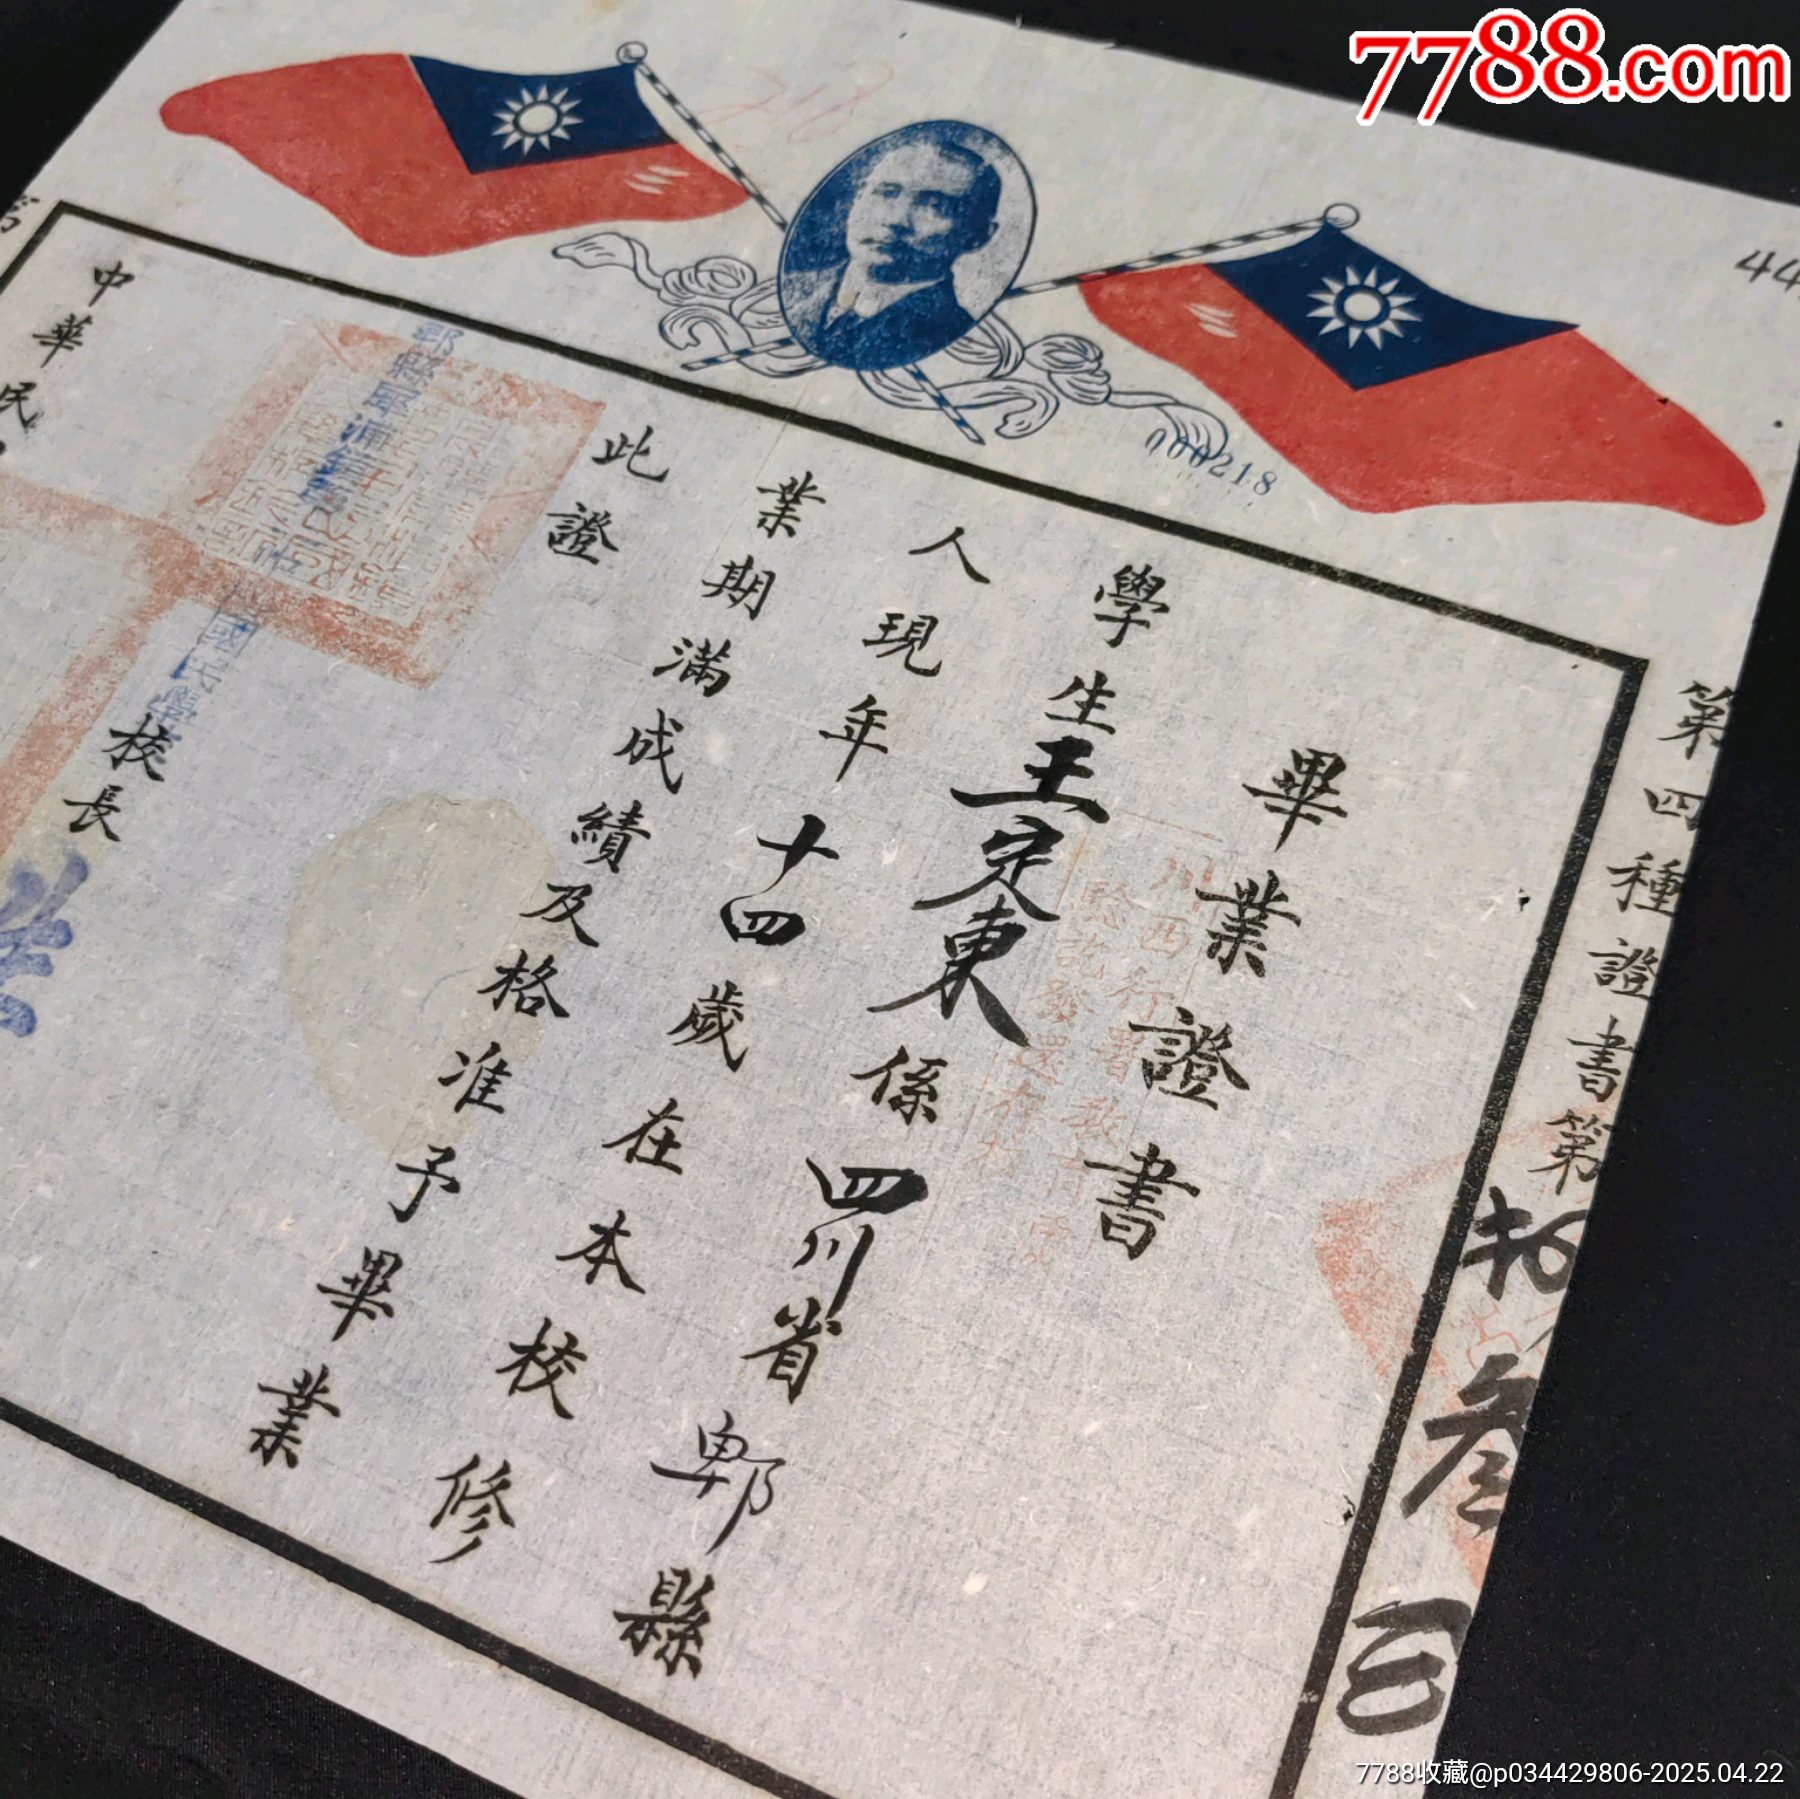 7788.com
44
000218
第四種證書第拾叁
畢業證書
學生王定東係四川省郫縣
人現年十四歲在本校修
業期滿成績及格准予畢業
此證
校長
中華民
郫縣犀浦鎮
國民學
川西行署教育
驗訖發還存
7788收藏@p034429806-2025.04.22